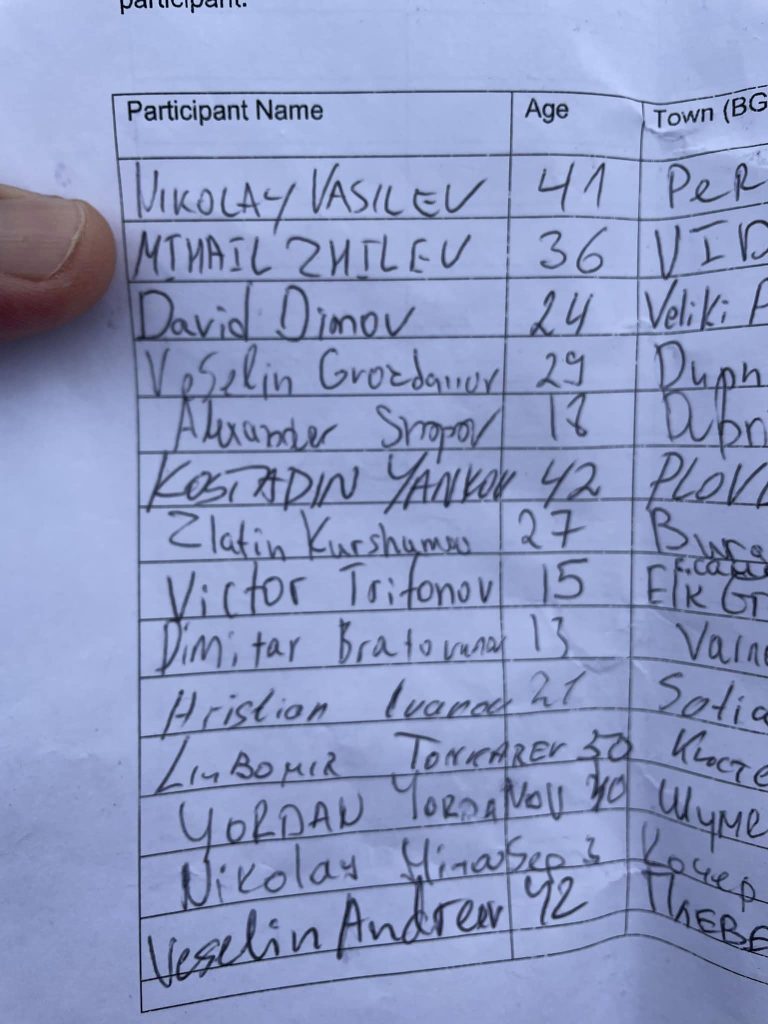 participant.
Participant Name Age Town (BG
NIKOLAY VASILEV 41 PER
MIHAIL ZHILEV 36 VID
David Dimov 24 Veliki P
Veselin Grozdanov 29 Dupn
Alexander 18 Dubn
KOSTADIN YANKOV 42 PLOVI
Zlatin 27 Burga
Victor Trifonov 15 Elk Gr
Dimitar 13 Varna
Hristian Ivanov 21 Sofia
LIUBOMIR TONKAREV 50 Кюсте
YORDAN YORDANOV 40 Шуме
Nikolay 3 Кочер
Veselin Andreev 42 Плеве